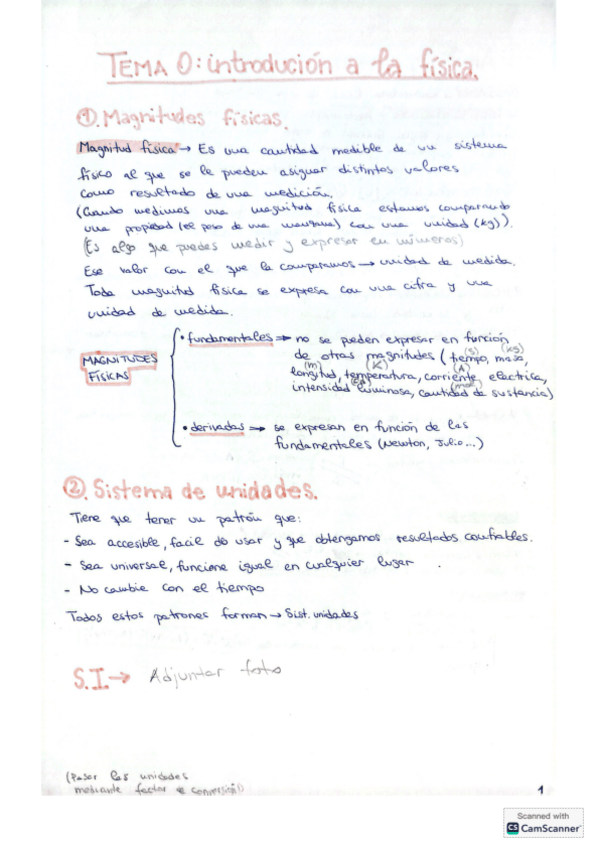 TEMA 0: introdución a la física.
① Magnitudes físicas.
Magnitud física → Es una cantidad medible de un sistema
físico al que se le pueden asignar distintos valores
como resultado de una medición.
(Cuando medimos una magnitud física estamos comparando
una propiedad (el peso de una manzana) con una unidad (kg)).
(Es algo que puedes medir y expresar en números)
Ese valor con el que la comparamos → unidad de medida.
Toda magnitud física se expresa con una cifra y una
unidad de medida.
MAGNITUDES
FÍSICAS
• fundamentales → no se pueden expresar en función
de otras magnitudes (tiempo, masa,
(s) (kg)
longitud, temperatura, corriente electrica,
(m) (K) (A)
intensidad luminosa, cantidad de sustancia)
(cd) (mol)
• derivadas → se expresan en función de las
fundamentales (Newton, Julio...)
② Sistema de unidades.
Tiene que tener un patrón que:
- Sea accesible, facil de usar y que obtengamos resultados confiables.
- Sea universal, funcione igual en cualquier lugar.
- No cambie con el tiempo
Todos estos patrones forman → Sist. unidades
S.I. → Adjuntar foto
(Pasar las unidades
mediante factor de conversión)
1
Scanned with
CS CamScanner